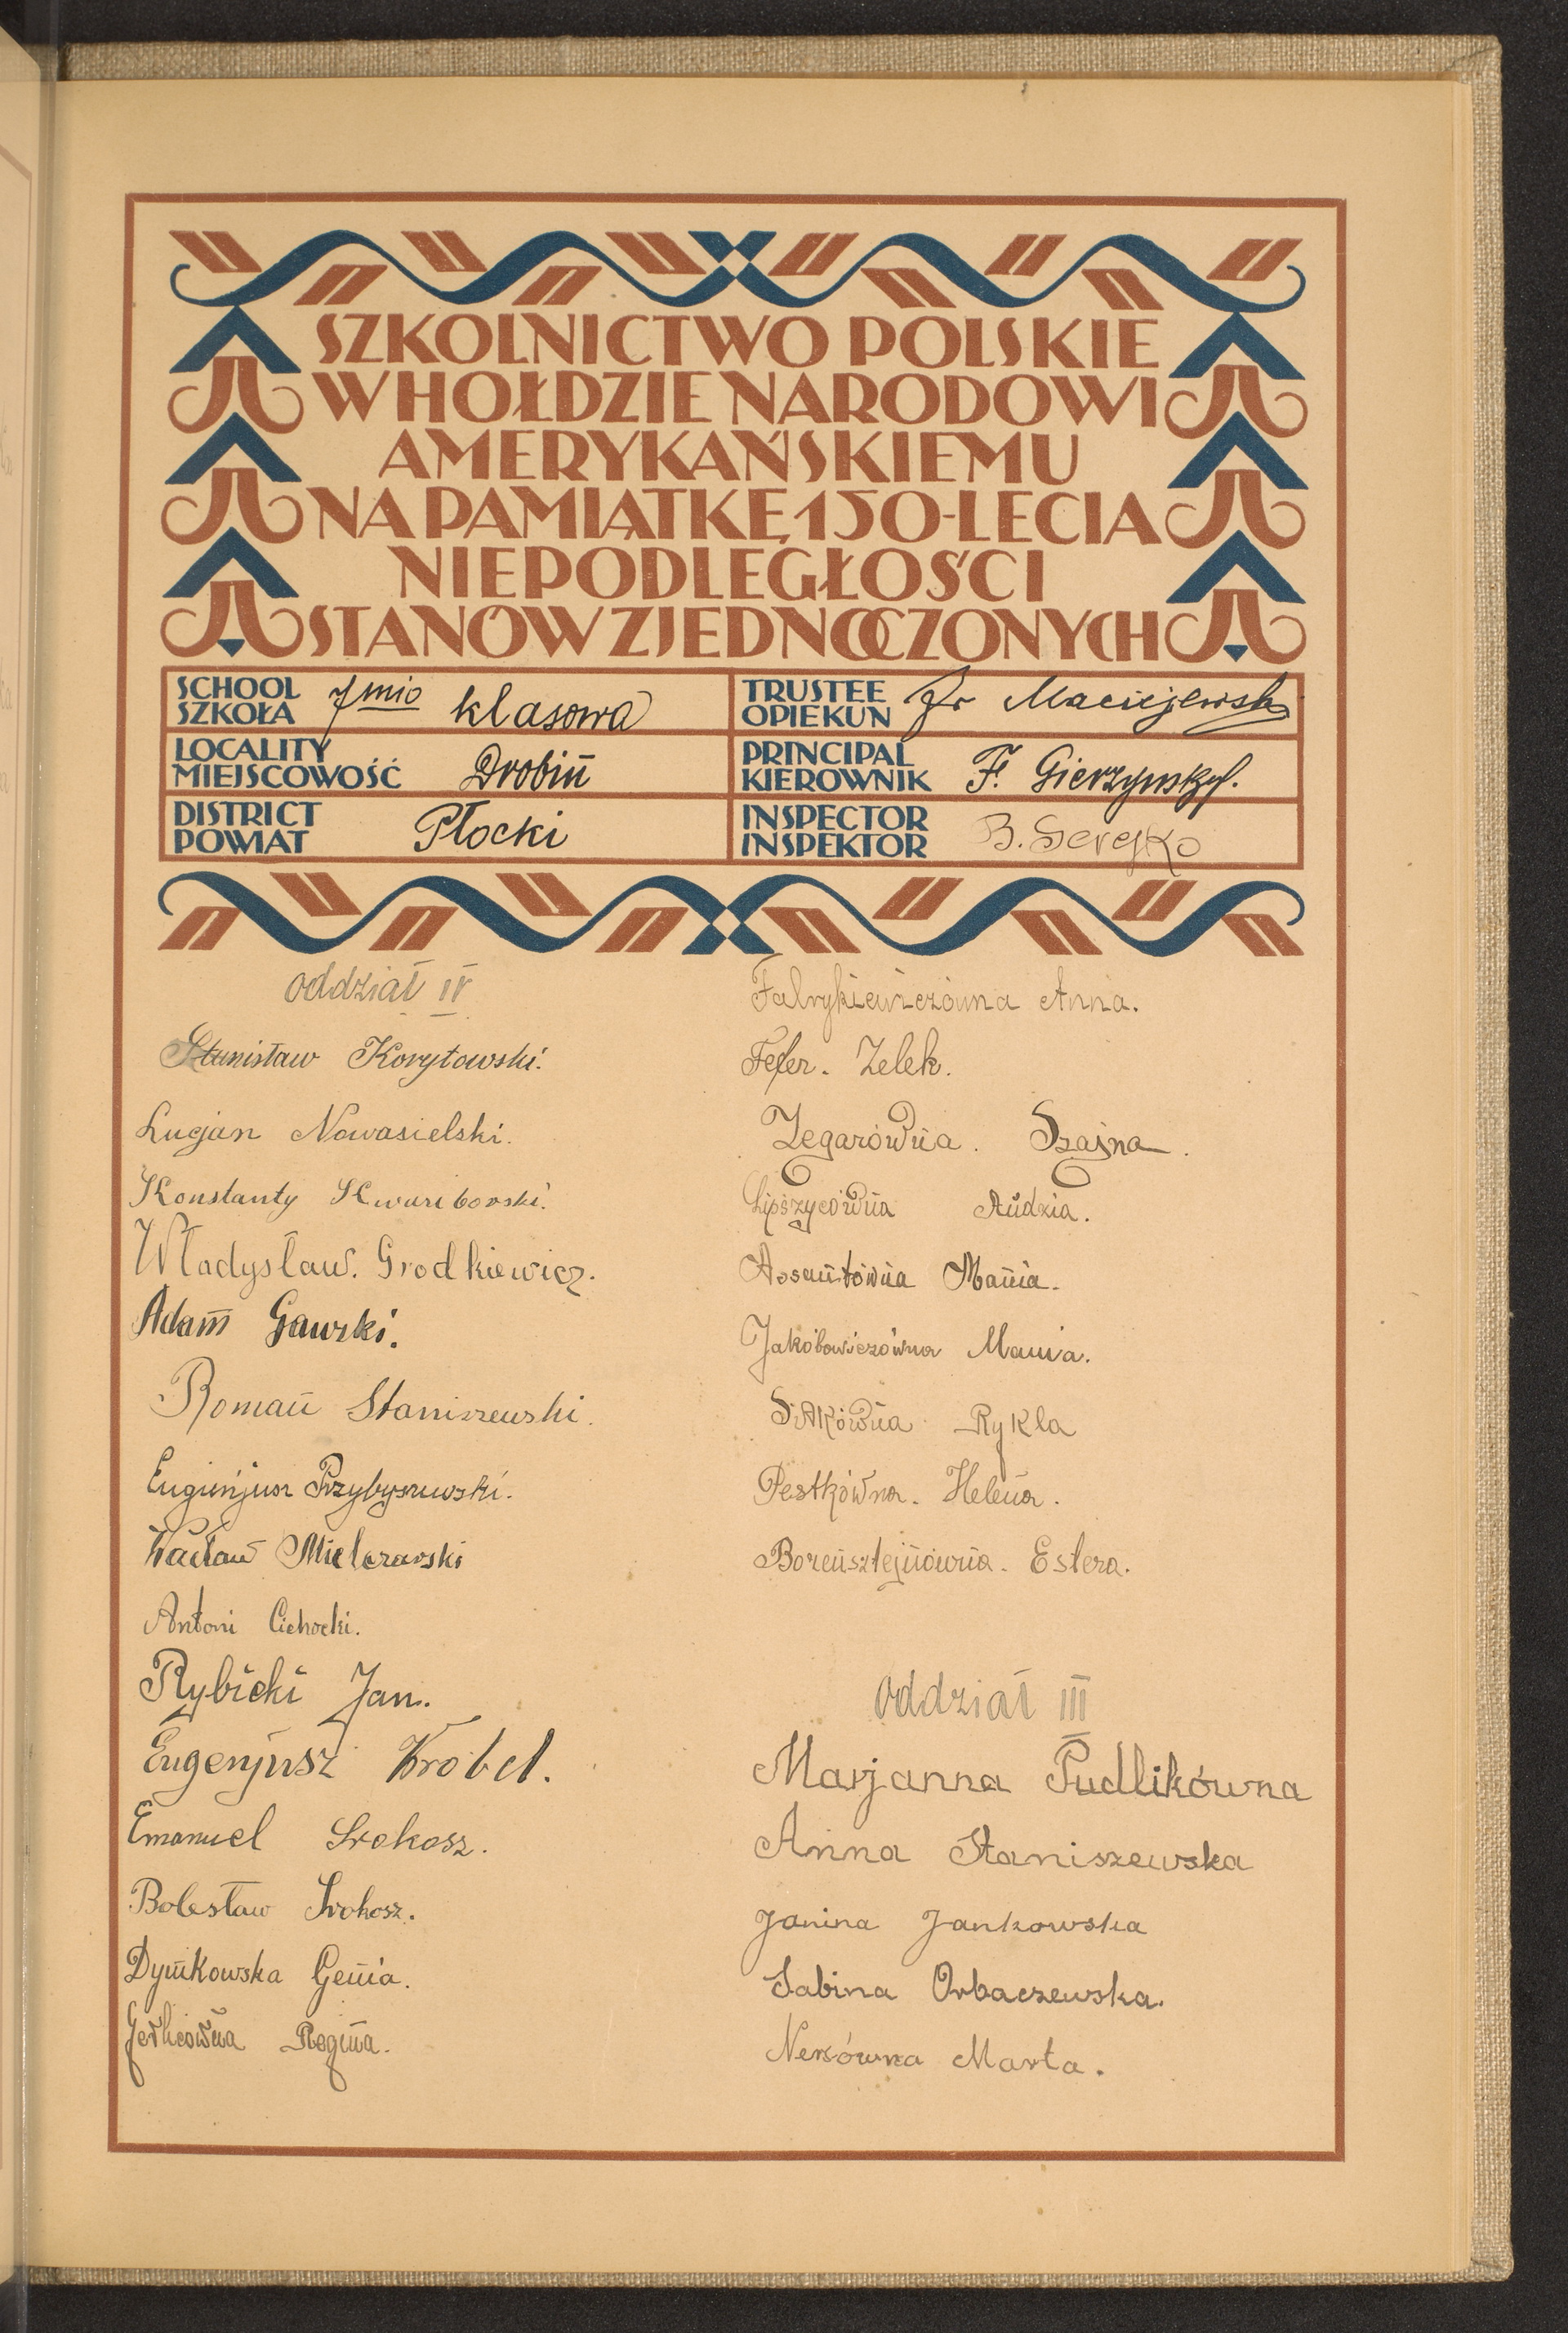 SZKOLNICTWO POLSKIE
W HOŁDZIE NARODOWI
AMERYKAŃSKIEMU
NA PAMIĄTKĘ 150-LECIA
NIEPODLEGŁOŚCI
STANÓW ZJEDNOCZONYCH
SCHOOL
SZKOŁA 7mio klasowa
LOCALITY
MIEJSCOWOŚĆ Drobin
DISTRICT
POWIAT Płocki
TRUSTEE
OPIEKUN Maciejewski
PRINCIPAL
KIEROWNIK F. Gierzyński
INSPECTOR
INSPEKTOR B. Serejko
oddział IV
Stanisław Korytowski.
Lucjan Nowasielski.
Konstanty
Władysław. Grodkiewicz.
Adam Gawski.
Roman Staniszewski.
Eugieńjusz Przybyszewski.
Wacław Mielczarski
Antoni Cichocki.
Rybicki Jan.
Eugenjusz Wróbel.
Emanuel Srokosz.
Bolesław Srokosz.
Dymkowska Genia.
Regina.
Fabrykiewiczówna Anna.
Fefer. Zelek.
Zegarówna. Szajna.
Lipszycówna Rudzia.
Mania.
Jakóbowiczówna Mania.
Rykla
Pestkówna. Helena.
Borensztejnówna. Estera.
oddział III
Marjanna Pudlikówna
Anna Staniszewska
Janina Jankowska
Sabina Orbaczewska.
Marta.